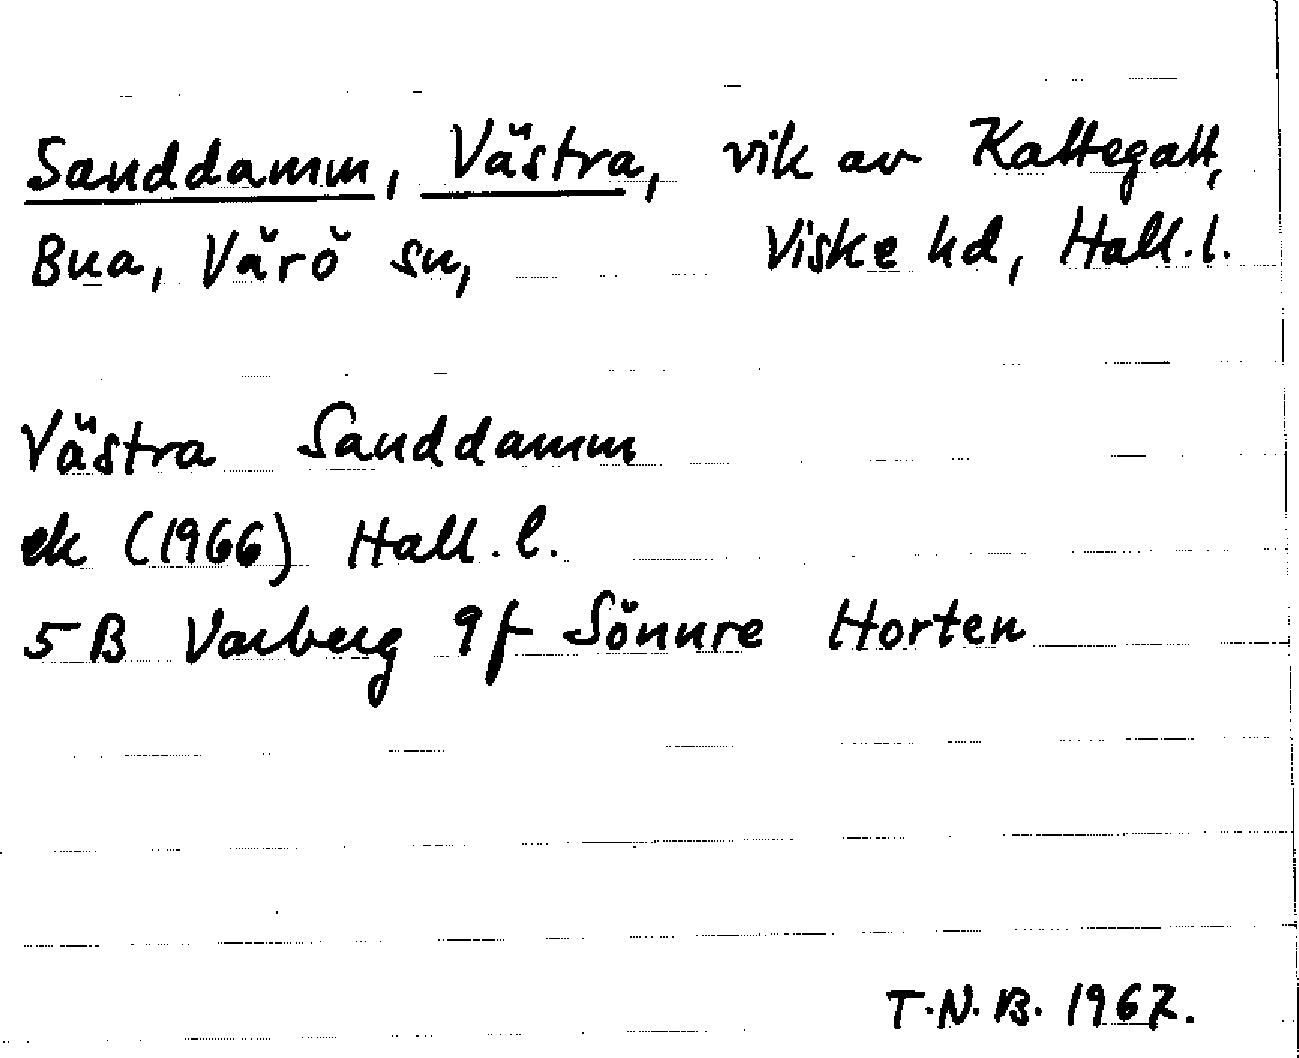 Sanddamm, Västra, vik av Kattegatt,
Bua, Värö sn, Viske hd, Hall.l.
Västra Sanddamm
ek (1966) Hall.l.
5B Varberg 9f Sönnre Horten
T.N.B. 1967.